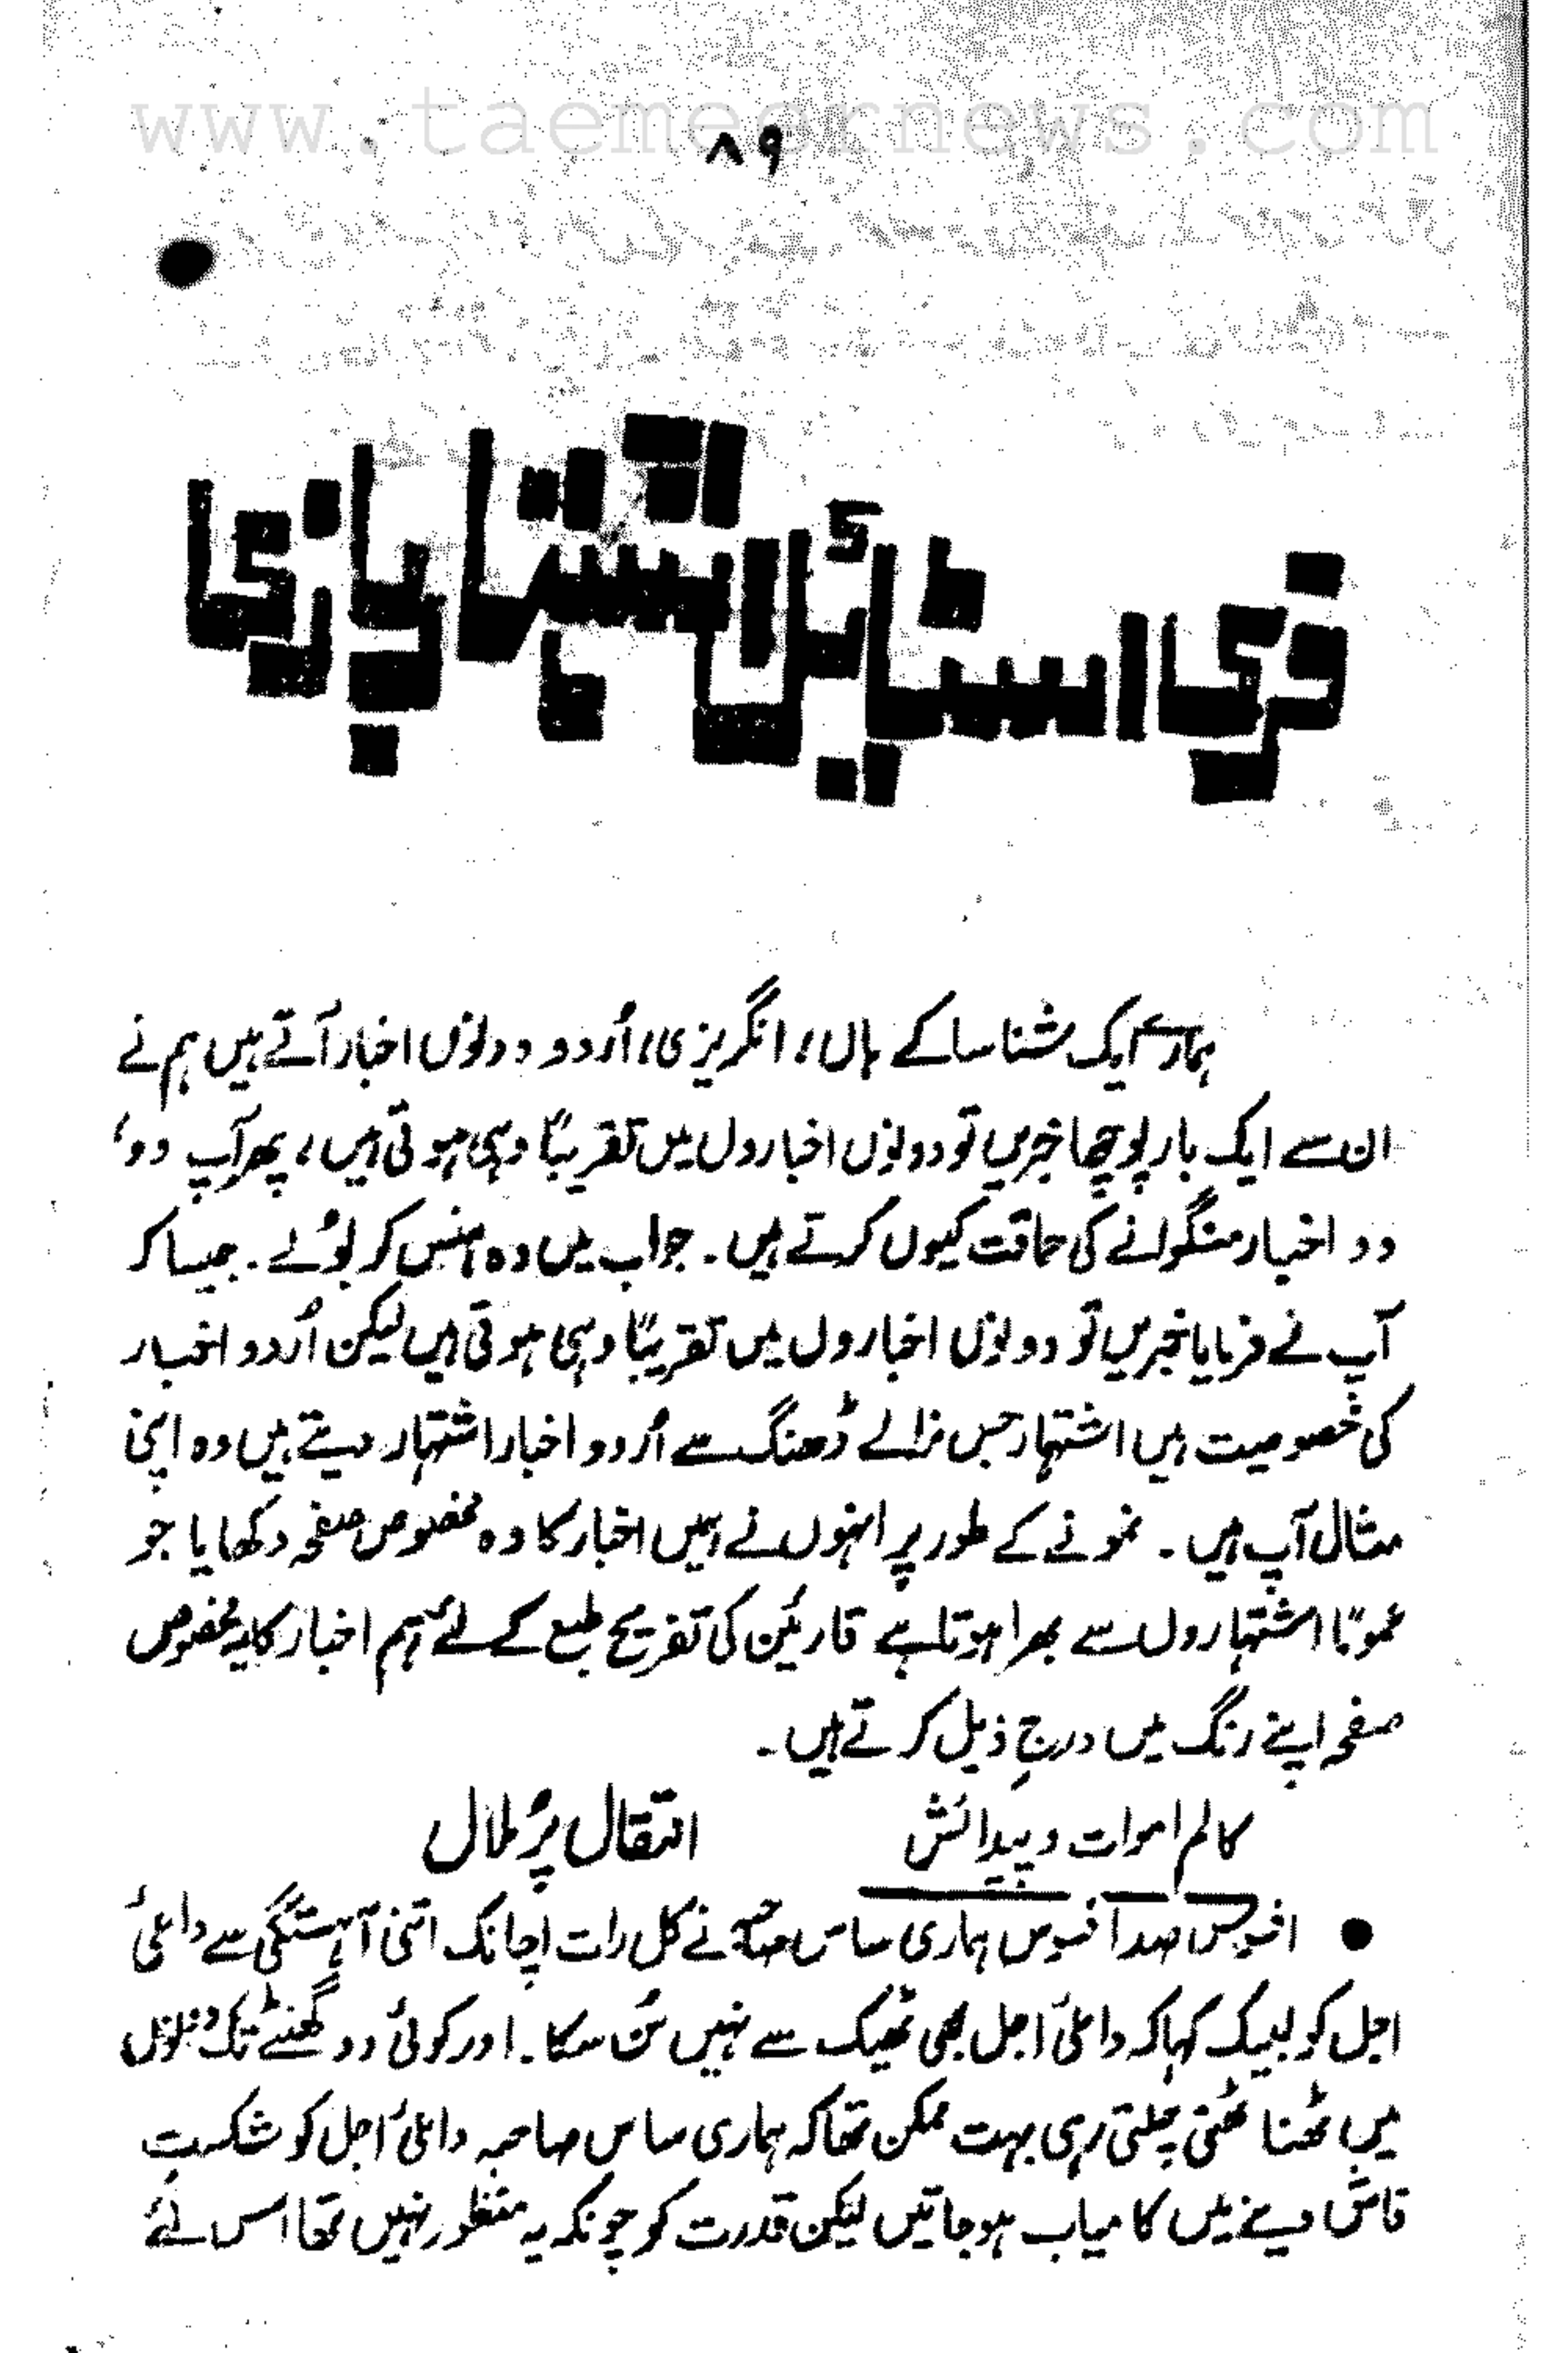 www.taemeernews.com
۸۹
فری اسٹائل اشتہار بازی
ہمارے ایک شناسا کے ہاں، انگریزی، اُردو دونوں اخبار آتے ہیں ہم نے
ان سے ایک بار پوچھا خبریں تو دونوں اخباروں میں تقریباً وہی ہوتی ہیں، پھر آپ دو،
دو اخبار منگوانے کی حماقت کیوں کرتے ہیں۔ جواب میں وہ ہنس کر بولے۔ جیسا کہ
آپ نے فرمایا خبریں تو دونوں اخباروں میں تقریباً وہی ہوتی ہیں لیکن اُردو اخبار
کی خصوصیت ہیں اشتہار جس نرالے ڈھنگ سے اُردو اخبار اشتہار دیتے ہیں وہ اپنی
مثال آپ ہیں۔ نمونے کے طور پر انہوں نے ہمیں اخبار کا وہ مخصوص صفحہ دکھایا جو
عموماً اشتہاروں سے بھرا ہوتا ہے قارئین کی تفریح طبع کے لئے ہم اخبار کا یہ مخصوص
صفحہ اپنے رنگ میں درجِ ذیل کرتے ہیں۔
کالم اموات و پیدائش انتقال پُر ملال
● افسوس صد افسوس ہماری ساس صاحبہ نے کل رات اچانک اتنی آہستگی سے داعیٔ
اجل کو لبیک کہا کہ داعیٔ اجل بھی ٹھیک سے نہیں سُن سکا۔ اور کوئی دو گھنٹے تک دونوں
میں ٹھنا ٹھنی چلتی رہی بہت ممکن تھا کہ ہماری ساس صاحبہ داعیٔ اجل کو شکستِ
فاش دینے میں کامیاب ہوجاتیں لیکن قدرت کو چونکہ یہ منظور نہیں تھا اس لئے